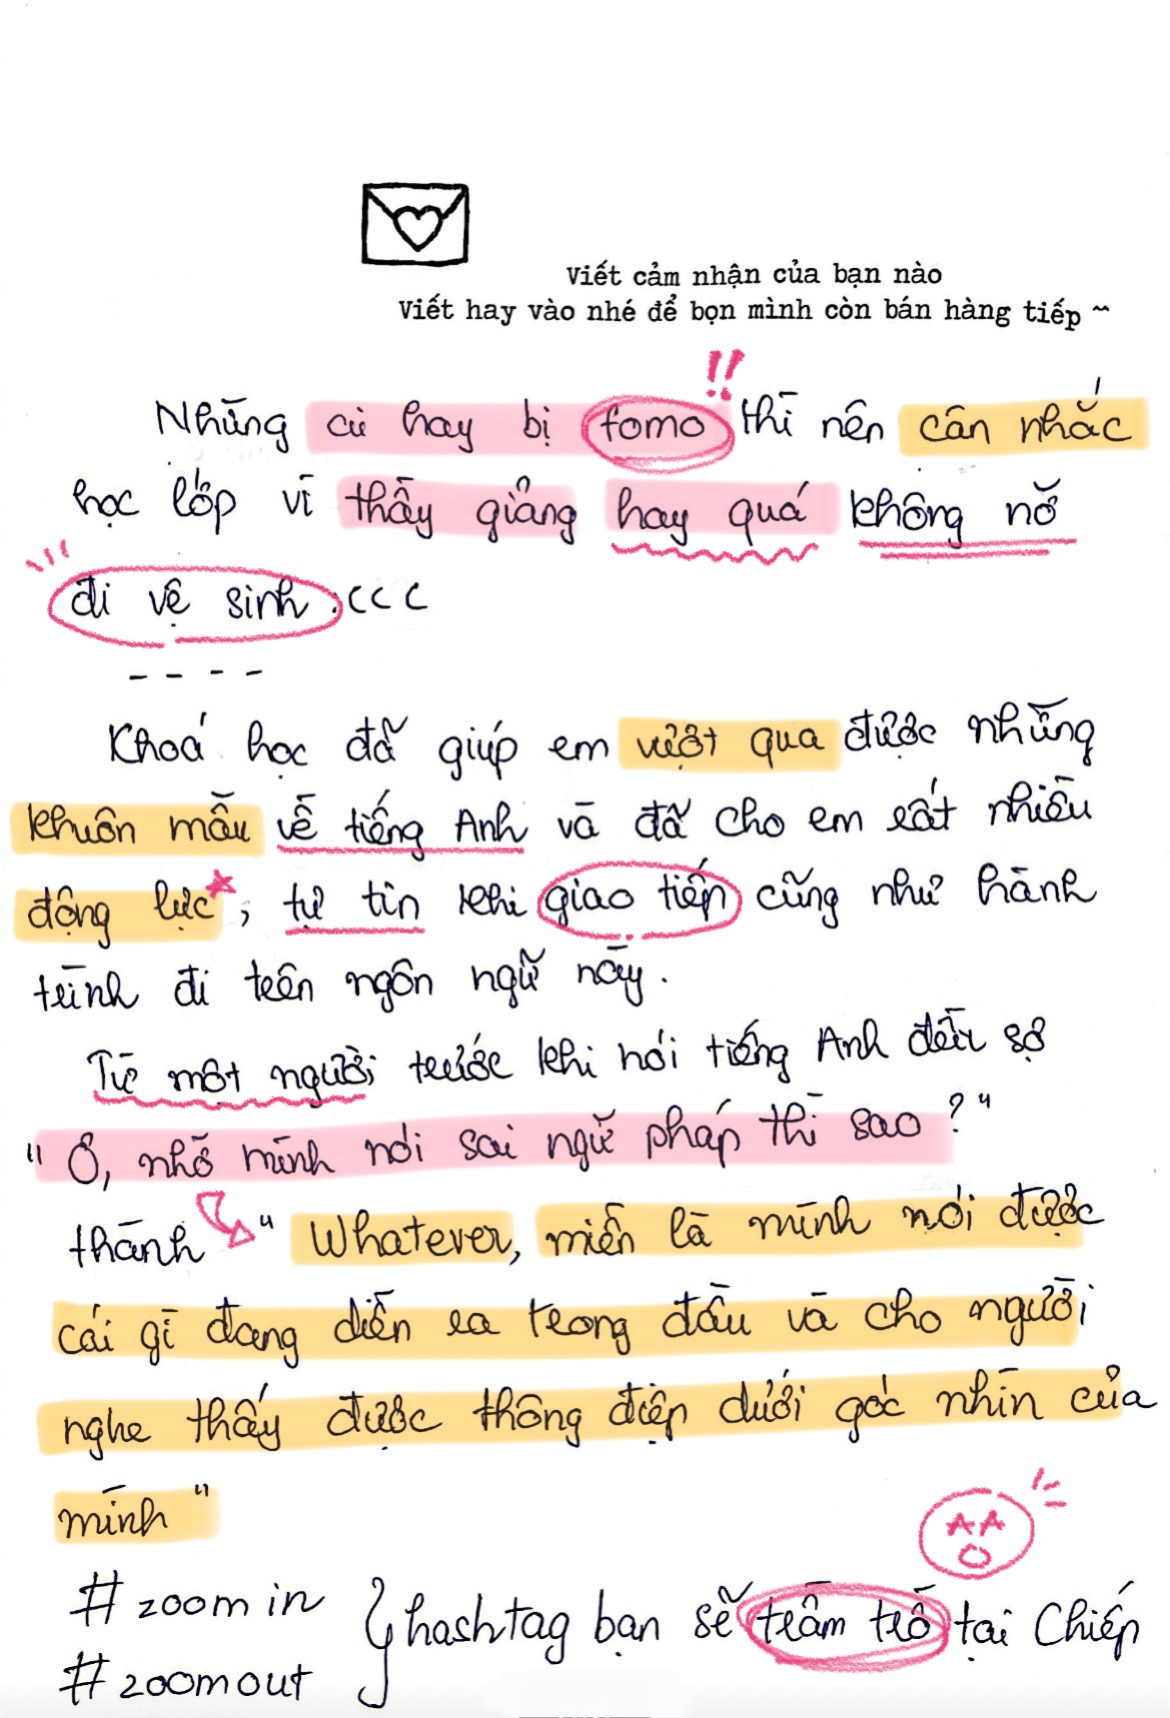 Viết cảm nhận của bạn nào
Viết hay vào nhé để bọn mình còn bán hàng tiếp ~
Những cù hay bị fomo !! thì nên cân nhắc
học lớp vì thầy giảng hay quá không nỡ
đi vệ sinh :(((
----
Khoá học đã giúp em vượt qua được những
khuôn mẫu về tiếng Anh và đã cho em rất nhiều
động lực, tự tin khi giao tiếp cũng như hành
trình đi trên ngôn ngữ này.
Từ một người trước khi nói tiếng Anh đều sợ
"Ô, nhỡ mình nói sai ngữ pháp thì sao?"
thành "Whatever, miễn là mình nói được
cái gì đang diễn ra trong đầu và cho người
nghe thấy được thông điệp dưới góc nhìn của
mình"
#zoom in
#zoomout } hashtag bạn sẽ trầm trồ tại Chiếp